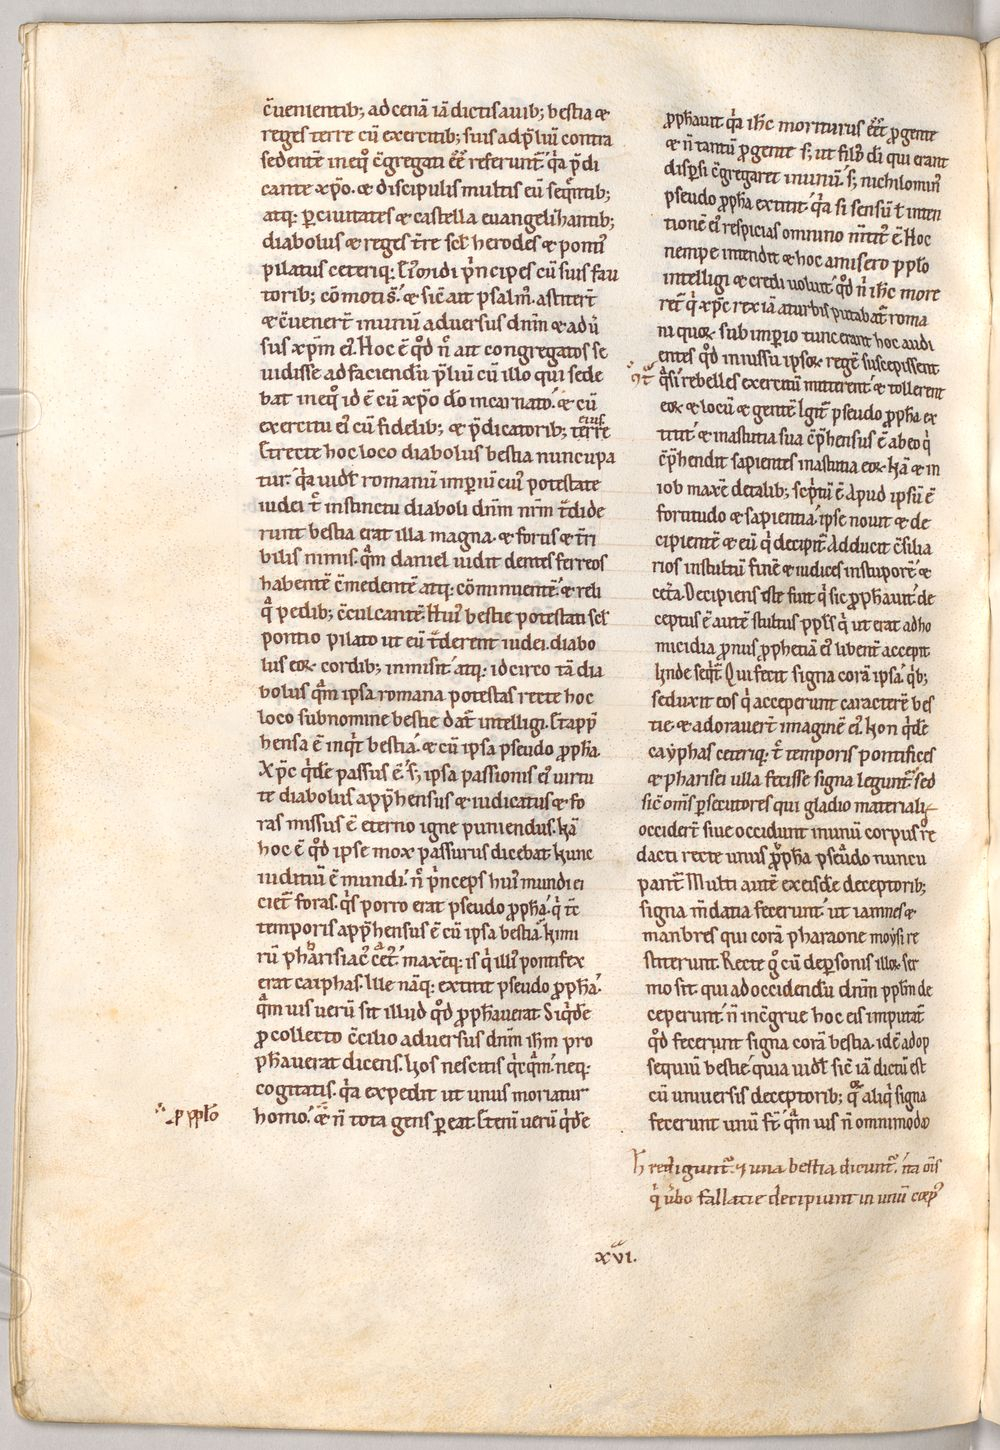 c̄uenientib; ad cenā iā dictis auib; bestia &
reges terre cū exercitib; suis ad p̄liū contra
sedentē in equo c̄gregati ēē referunt᷑. q̇a p̄di
cante xp̄o. & discipulis multis eū seq̄ntib;
atq; ꝑ ciuitates & castella euangelizantib;
diabolus & reges t̄re scl̄ herodes & pontiꝰ
pilatus ceteriq; eiꝰmodi p̄ncipes cū suis fau
torib; cōmoti s̄. & sic̄ ait psalmꝰ. astiter̄t
& c̄uener̄t in unū aduersus dn̄m & adu̾
sus xp̄m eiꝰ. Hoc ē qd̄ n̄ ait congregatos se
uidisse ad faciendū p̄liū cū illo qui sede
bat in equo id ē cū xp̄o do incarnato. & cū
exercitu eiꝰ cū fidelib; & p̄dicatorib; eiusˊ terre
Et recte hoc loco diabolus bestia nuncupa
tur. q̇a uidl̄ romanū imperiū cuiꝰ potestate
iudei t̄ instinctu diaboli dn̄m nr̄m t̄dide
runt bestia erat illa magna. & fortis & t̄ri
bilis nimis. quā daniel uidit dentes ferreos
habentē c̄medentē atq; cōminuentē. & reli
q̇ pedib; c̄culcantē. Huiꝰ bestie potestati scl̄
pontio pilato ut eū t̄derent iudei. diabo
lus eoꝝ cordib; inmisit atq; idcirco tā dia
bolus quā ipsa romana potestas recte hoc
loco sub nomine bestie dat᷑ intelligi. Et app̄
hensa ē inqt bestia. & cū ipsa pseudo ꝓph̄a.
Xp̄c qde passus ē. s; ipsa passionis eiꝰ uirtu
te diabolus app̄hensus & iudicatus & fo
ras missus ē eterno igne puniendus. Nā
hoc ē qd̄ ipse mox passurus dicebat. Nunc
iuditiū ē mundi. n̄ p̄nceps huiꝰ mundi ei
ciet᷑ foras. Q̇s porro erat pseudo ꝓph̄a. q̇ t̄c
temporis app̄hensus ē cū ipsa bestia. Nimi
rū pharisiac᷒ cet᷒. maxeq; is q̇ illiꝰ pontifex
erat caiphas. Ille nāq; extitit pseudo ꝓph̄a.
quā uis uerū sit illud qd̄ ꝓph̄auerat. Siqde
ꝓ collecto c̄cilio aduersus dn̄m ih̄m pro
ph̄auerat dicens. Uos nescitis q̇cquā. neq;
cogitatis. q̇a expedit ut unus moriatur
homo. & n̄ tota gens ꝑeat. Et eni uerū qde
ꝓ pplo
ꝓph̄auit q̇a ih̄c moriturus ēēt ꝓ gente
& n̄ tantū ꝓ gente s; ut filios di qui erant
dispersi c̄gregaret in unū. s; nichilominꝰ
pseudo ꝓph̄a extitit. q̇a si sensū ł inten
tionē eiꝰ respicias omnino mtit᷑ ē. Hoc
nempe intendit & hoc a misero pplo
intelligi & credi uoluit. qd̄ n̄ ih̄c more
ret᷑ q̇ xp̄c rex iā a turbis putabat᷑ roma
ni quoꝝ sub imperio tunc erant hoc audi
entes qd̄ iniussu ipsoꝝ regē suscepissent
q̇si rebelles exercitū mitterent & tollerent
eoꝝ & locū & gentē. Igit᷑ pseudo ꝓph̄a ex
titit. & in astutia sua c̄p̄hensus ē ab eo q̇
c̄p̄hendit sapientes in astutia eoꝝ. Nā & in
iob maxē de talib; sc̄ptū ē. Apud ipsū ē
fortitudo & sapientia. ipse nouit & de
cipientē & eū q̇ decipit᷑. Adducit c̄silia
rios in stultū finē & iudices in stuporē. &
ceta. Decipiens iste fuit q̇ sic ꝓph̄auit. de
ceptus ē autē stultus ppl̄s q̇ ut erat ad ho
micidia pronus ꝓphetiā eiꝰ libent᷑ accepit
Unde seqt᷑. Qui fecit signa corā ipsa. q̇b;
seduxit eos q̇ acceperunt caracterē bes
tie & adorauer̄t imaginē eiꝰ. Non qde
cayphas ceteriq; t̄ temporis pontifices
& pharisei ulla fecisse signa legunt᷑. sed
sic̄ oms ꝑsecutores qui gladio materiali
occider̄t siue occidunt in unū corpus re
dacti recte unus ꝓph̄a pseudo nuncu
pant᷑. Multi autē ex eisde deceptorib;
signa mdatia fecerunt. ut iamnes &
manbres qui corā pharaone moysi re
stiterunt. Recte g̊ cū de personis illoꝝ ser
mo sit. qui ad occidendū dn̄m pplm de
ceperunt. n̄ inc̄grue hoc eis imputat᷑
qd̄ fecerunt signa corā bestia. id ē ad op
sequiū bestie. quia uidl̄ sic̄ iā dictū est
cū uniuersis deceptorib; quoꝝ aliq̇ signa
fecerunt unū st̄ quā uis n̄ omnimodo
h̄ rediguntᷣ & una bestia dicuntᷣ. ita oīs
q̇ u̾bo fallatie decipiunt in unū corpꝰ
xvi.